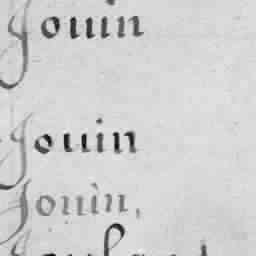 Jouin
Jouin
Jouin,